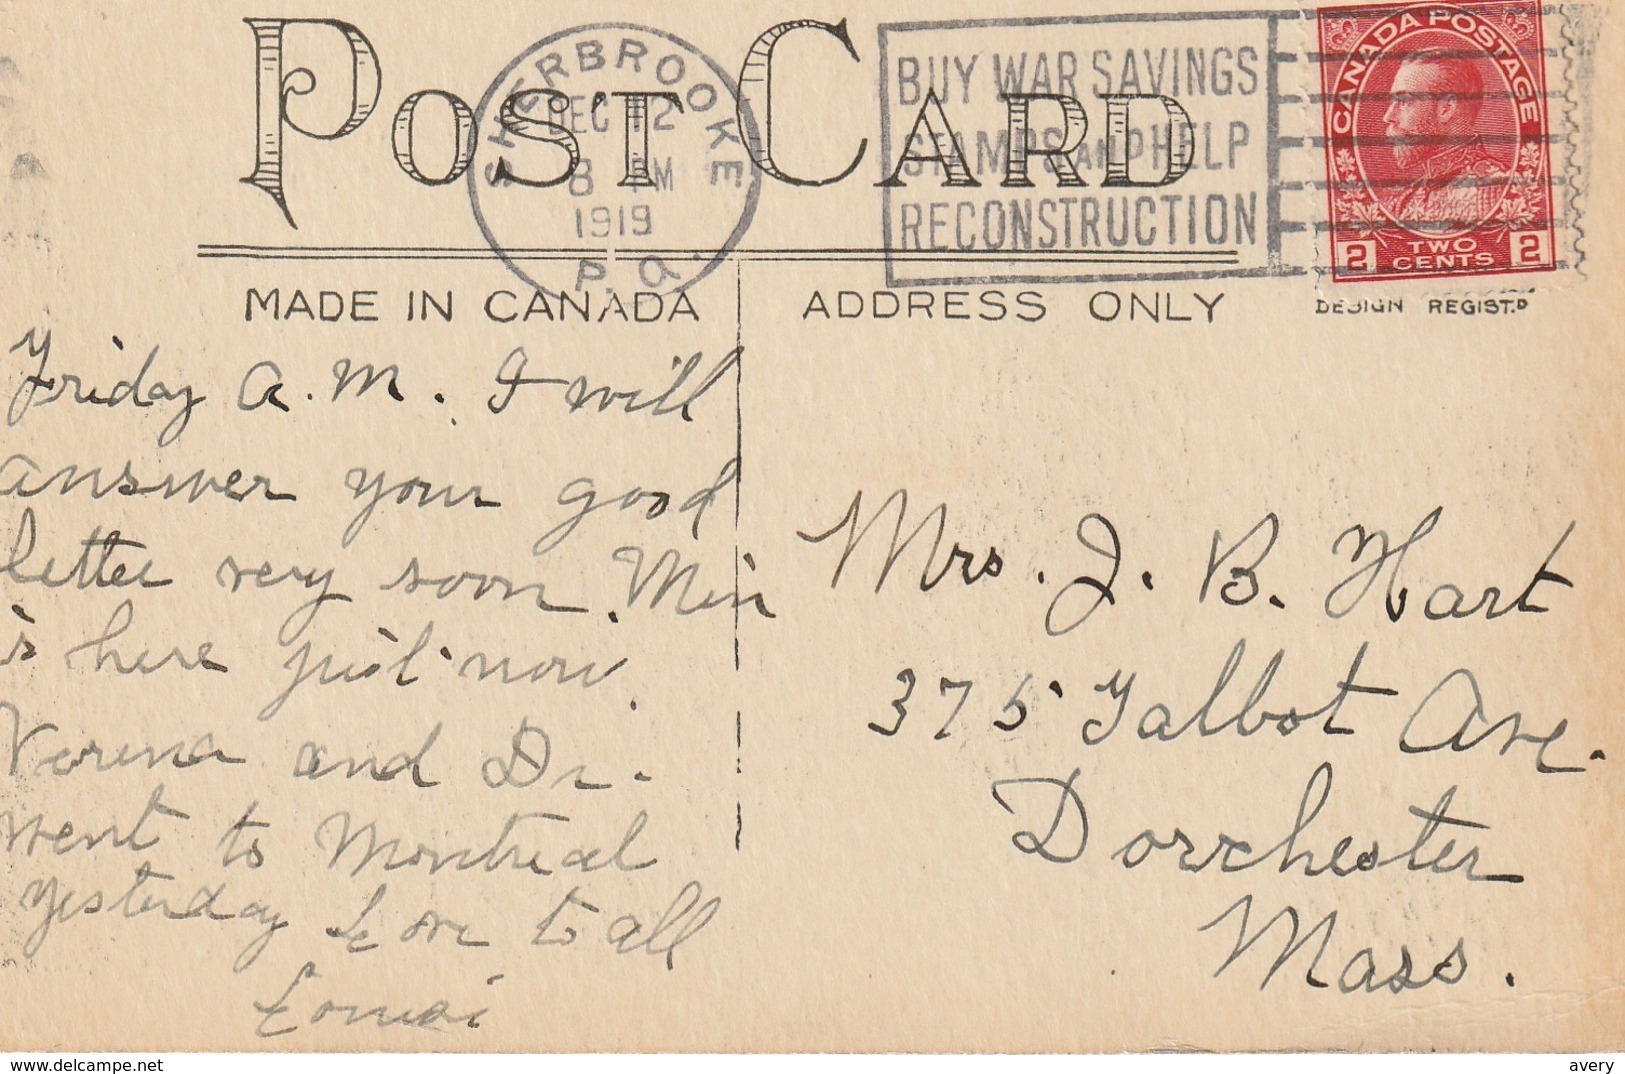 POST CARD
SHERBROOKE
DEC 12
8 PM
1919
P. Q.
BUY WAR SAVINGS
STAMPS AND HELP
RECONSTRUCTION
CANADA POSTAGE
2 TWO CENTS 2
MADE IN CANADA
ADDRESS ONLY
DESIGN REGIST.D
Friday A.M. I will
answer your good
letter very soon. Min
is here just now.
Verena and Dr.
went to Montreal
yesterday Love to all
Mrs. J. B. Hart
375 Talbot Ave.
Dorchester
Mass.
delcampe.net
avery